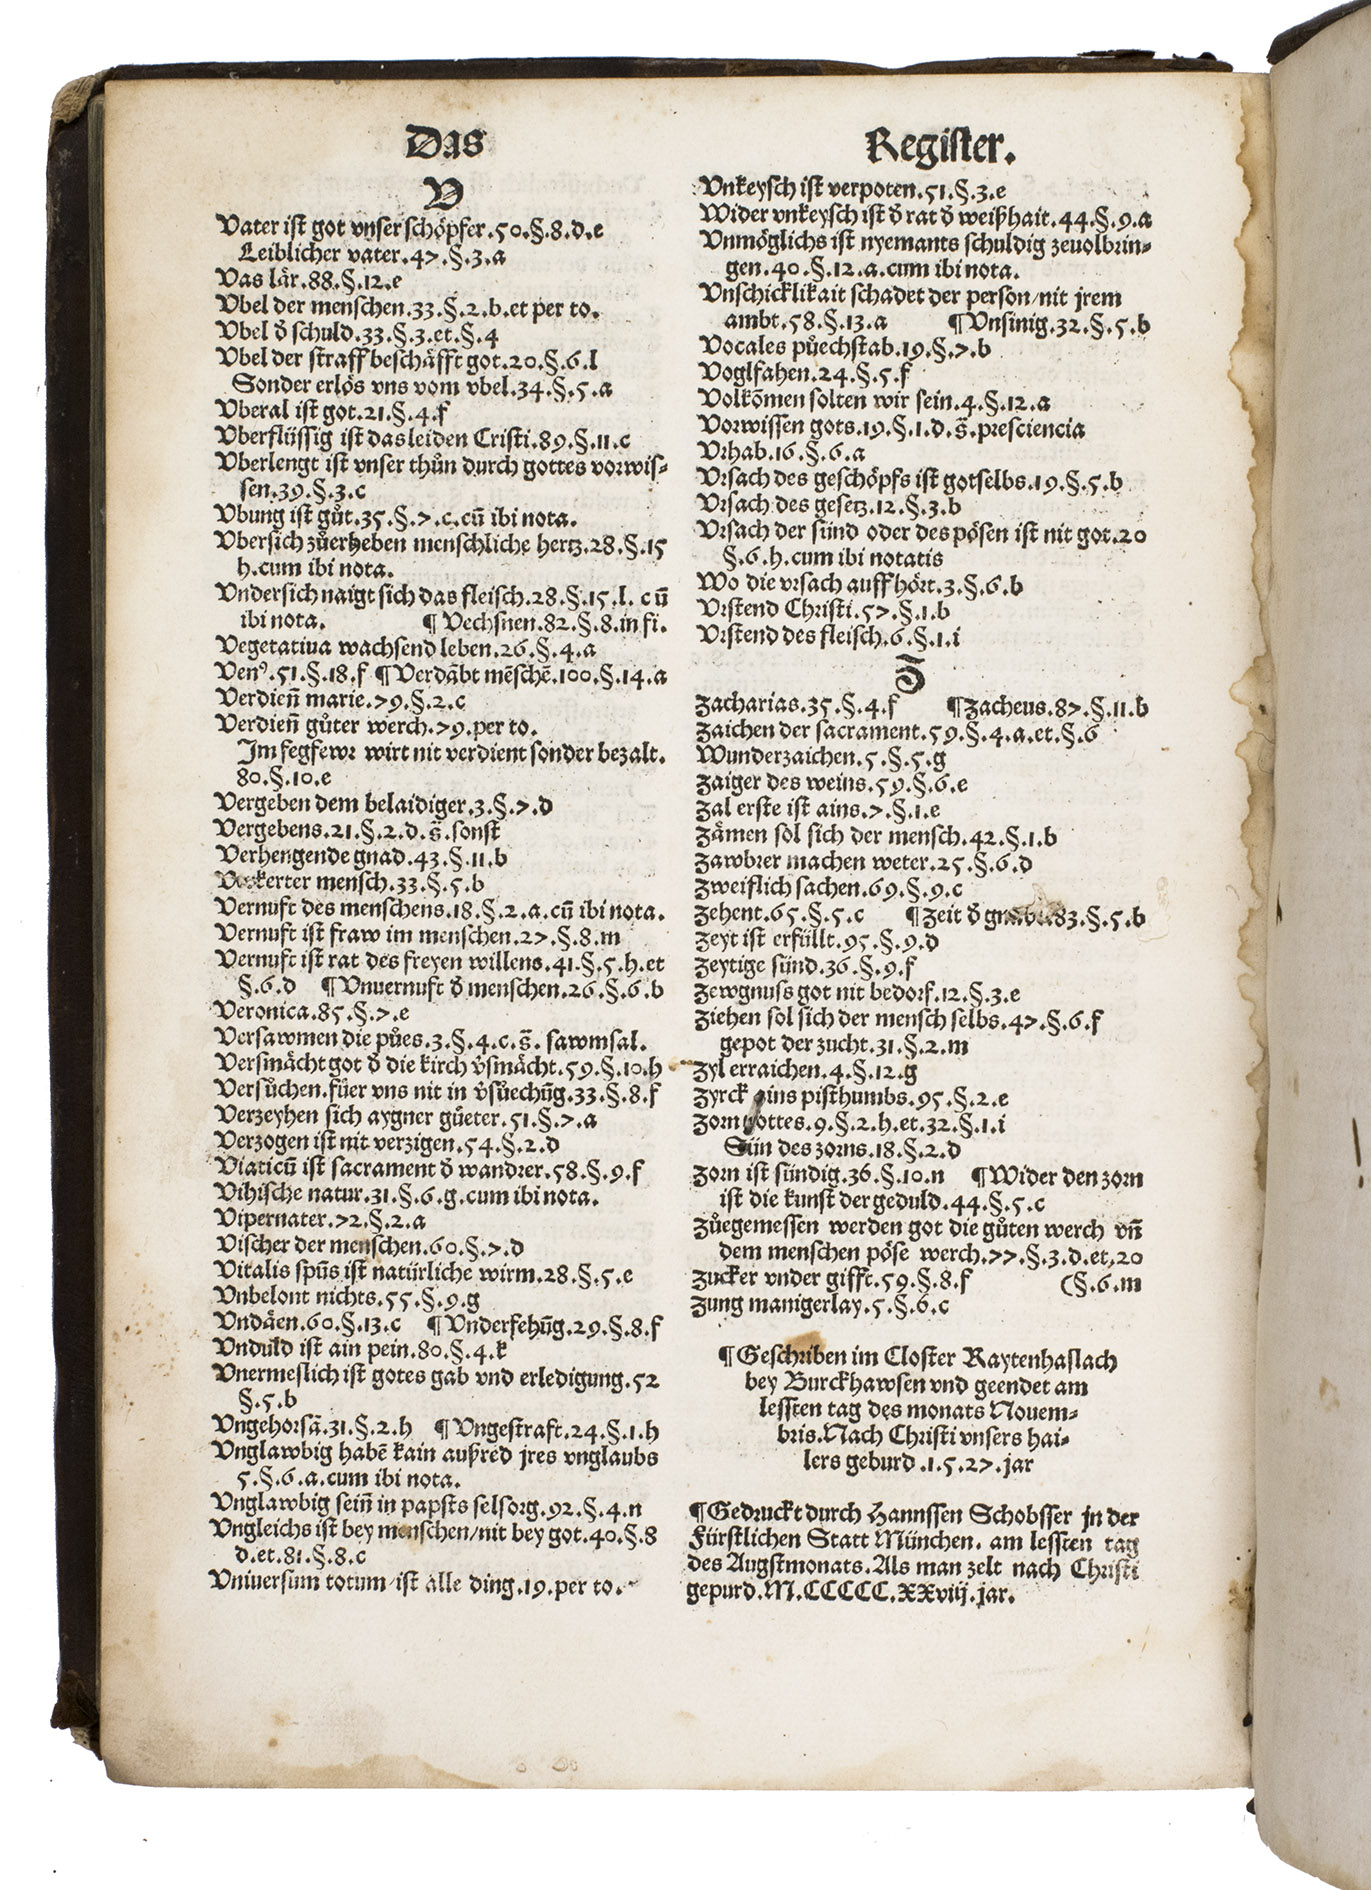 Das Register.
V
Vater ist got vnser schöpfer.50.§.8.d.e
Leiblicher vater.47.§.3.a
Vas lär.88.§.12.e
Vbel der menschen.33.§.2.b.et per to.
Vbel d̄ schuld.33.§.3.et.§.4
Vbel der straff beschäfft got.20.§.6.l
Sonder erlös vns vom vbel.34.§.5.a
Vberal ist got.21.§.4.f
Vberflüssig ist das leiden Cristi.89.§.11.c
Vberlengt ist vnser thůn durch gottes vorwis=
sen.39.§.3.c
Vbung ist gůt.35.§.7.c.cū ibi nota.
Vbersich zůerheben menschliche hertz.28.§.15
h.cum ibi nota.
Vndersich naigt sich das fleisch.28.§.15.l. cū
ibi nota. ¶ Vechsnen.82.§.8.in fi.
Vegetatiua wachsend leben.26.§.4.a
Venꝰ.51.§.18.f ¶Verdābt mēschē.100.§.14.a
Verdien̄ marie.79.§.2.c
Verdien̄ gůter werch.79.per to.
Im fegfewr wirt nit verdient sonder bezalt.
80.§.10.e
Vergeben dem belaidiger.3.§.7.d
Vergebens.21.§.2.d.s̄.sonst
Verhengende gnad.43.§.11.b
Verkerter mensch.33.§.5.b
Vernuft des menschens.18.§.2.a.cū ibi nota.
Vernuft ist fraw im menschen.27.§.8.m
Vernuft ist rat des freyen willens.41.§.5.h.et
§.6.d ¶Vnuernuft d̄ menschen.26.§.6.b
Veronica.85.§.7.e
Versawmen die půes.3.§.4.c.s̄. sawmsal.
Versmächt got d̄ die kirch v̄smächt.59.§.10.h
Versůchen.füer vns nit in v̄sůechūg.33.§.8.f
Verzeyhen sich aygner gůeter.51.§.7.a
Verzogen ist nit verzigen.54.§.2.d
Viaticū ist sacrament d̄ wandrer.58.§.9.f
Vihische natur.31.§.6.g.cum ibi nota.
Vipernater.72.§.2.a
Vischer der menschen.60.§.7.d
Vitalis spūs ist natürliche wirm.28.§.5.e
Vnbelont nichts.55.§.9.g
Vndäen.60.§.13.c ¶Vnderfehūg.29.§.8.f
Vnduld ist ain pein.80.§.4.k
Vnermeslich ist gotes gab vnd erledigung.52
§.5.b
Vngehorsā.31.§.2.h ¶Vngestraft.24.§.1.h
Vnglawbig habē kain außred jres vnglaubs
5.§.6.a.cum ibi nota.
Vnglawbig sein̄ in papsts selsorg.92.§.4.n
Vngleichs ist bey menschen/nit bey got.40.§.8
d.et.81.§.8.c
Vniuersum totum/ist alle ding.19.per to.
Vnkeysch ist verpoten.51.§.3.e
Wider vnkeysch ist d̄ rat d̄ weißhait.44.§.9.a
Vnmöglichs ist nyemants schuldig zeuolbrin=
gen.40.§.12.a.cum ibi nota.
Vnschicklikait schadet der person/nit jrem
ambt.58.§.13.a ¶Vnsinig.32.§.5.b
Vocales půechstab.19.§.7.b
Voglfahen.24.§.5.f
Volkōmen solten wir sein.4.§.12.a
Vorwissen gots.19.§.1.d.s̄.presciencia
Vrhab.16.§.6.a
Vrsach des geschöpfs ist gotselbs.19.§.5.b
Vrsach des gesetz.12.§.3.b
Vrsach der sünd oder des pösen ist nit got.20
§.6.h.cum ibi notatis
Wo die vrsach auffhört.3.§.6.b
Vrstend Christi.57.§.1.b
Vrstend des fleisch.6.§.1.i
Z
Zacharias.35.§.4.f ¶Zacheus.87.§.11.b
Zaichen der sacrament.59.§.4.a.et.§.6
Wunderzaichen.5.§.5.g
Zaiger des weins.59.§.6.e
Zal erste ist ains.7.§.1.e
Zämen sol sich der mensch.42.§.1.b
Zawbrer machen weter.25.§.6.d
Zweiflich sachen.69.§.9.c
Zehent.65.§.5.c ¶Zeit d̄ 83.§.5.b
Zeyt ist erfüllt.95.§.9.d
Zeytige sünd.36.§.9.f
Zewgnuss got nit bedorf.12.§.3.e
Ziehen sol sich der mensch selbs.47.§.6.f
gepot der zucht.31.§.2.m
Zyl erraichen.4.§.12.g
Zyrck ains pisthumbs.95.§.2.e
Zorn gottes.9.§.2.h.et.32.§.1.i
Sün des zorns.18.§.2.d
Zorn ist sündig.36.§.10.n ¶Wider den zorn
ist die kunst der geduld.44.§.5.c
Zůegemessen werden got die gůten werch vn̄
dem menschen pöse werch.77.§.3.d.et.20
Zucker vnder gifft.59.§.8.f (§.6.m
Zung manigerlay.5.§.6.c
¶Geschriben im Closter Raytenhaslach
bey Burckhawsen vnd geendet am
lessten tag des monats Nouem=
bris.Nach Christi vnsers hai=
lers geburd.1.5.27.jar
¶Gedruckt durch Hannssen Schobsser jn der
Fürstlichen Statt München. am lessten tag
des Augstmonats. Als man zelt nach Christi
gepurd.M.CCCCC.XXviij.jar.